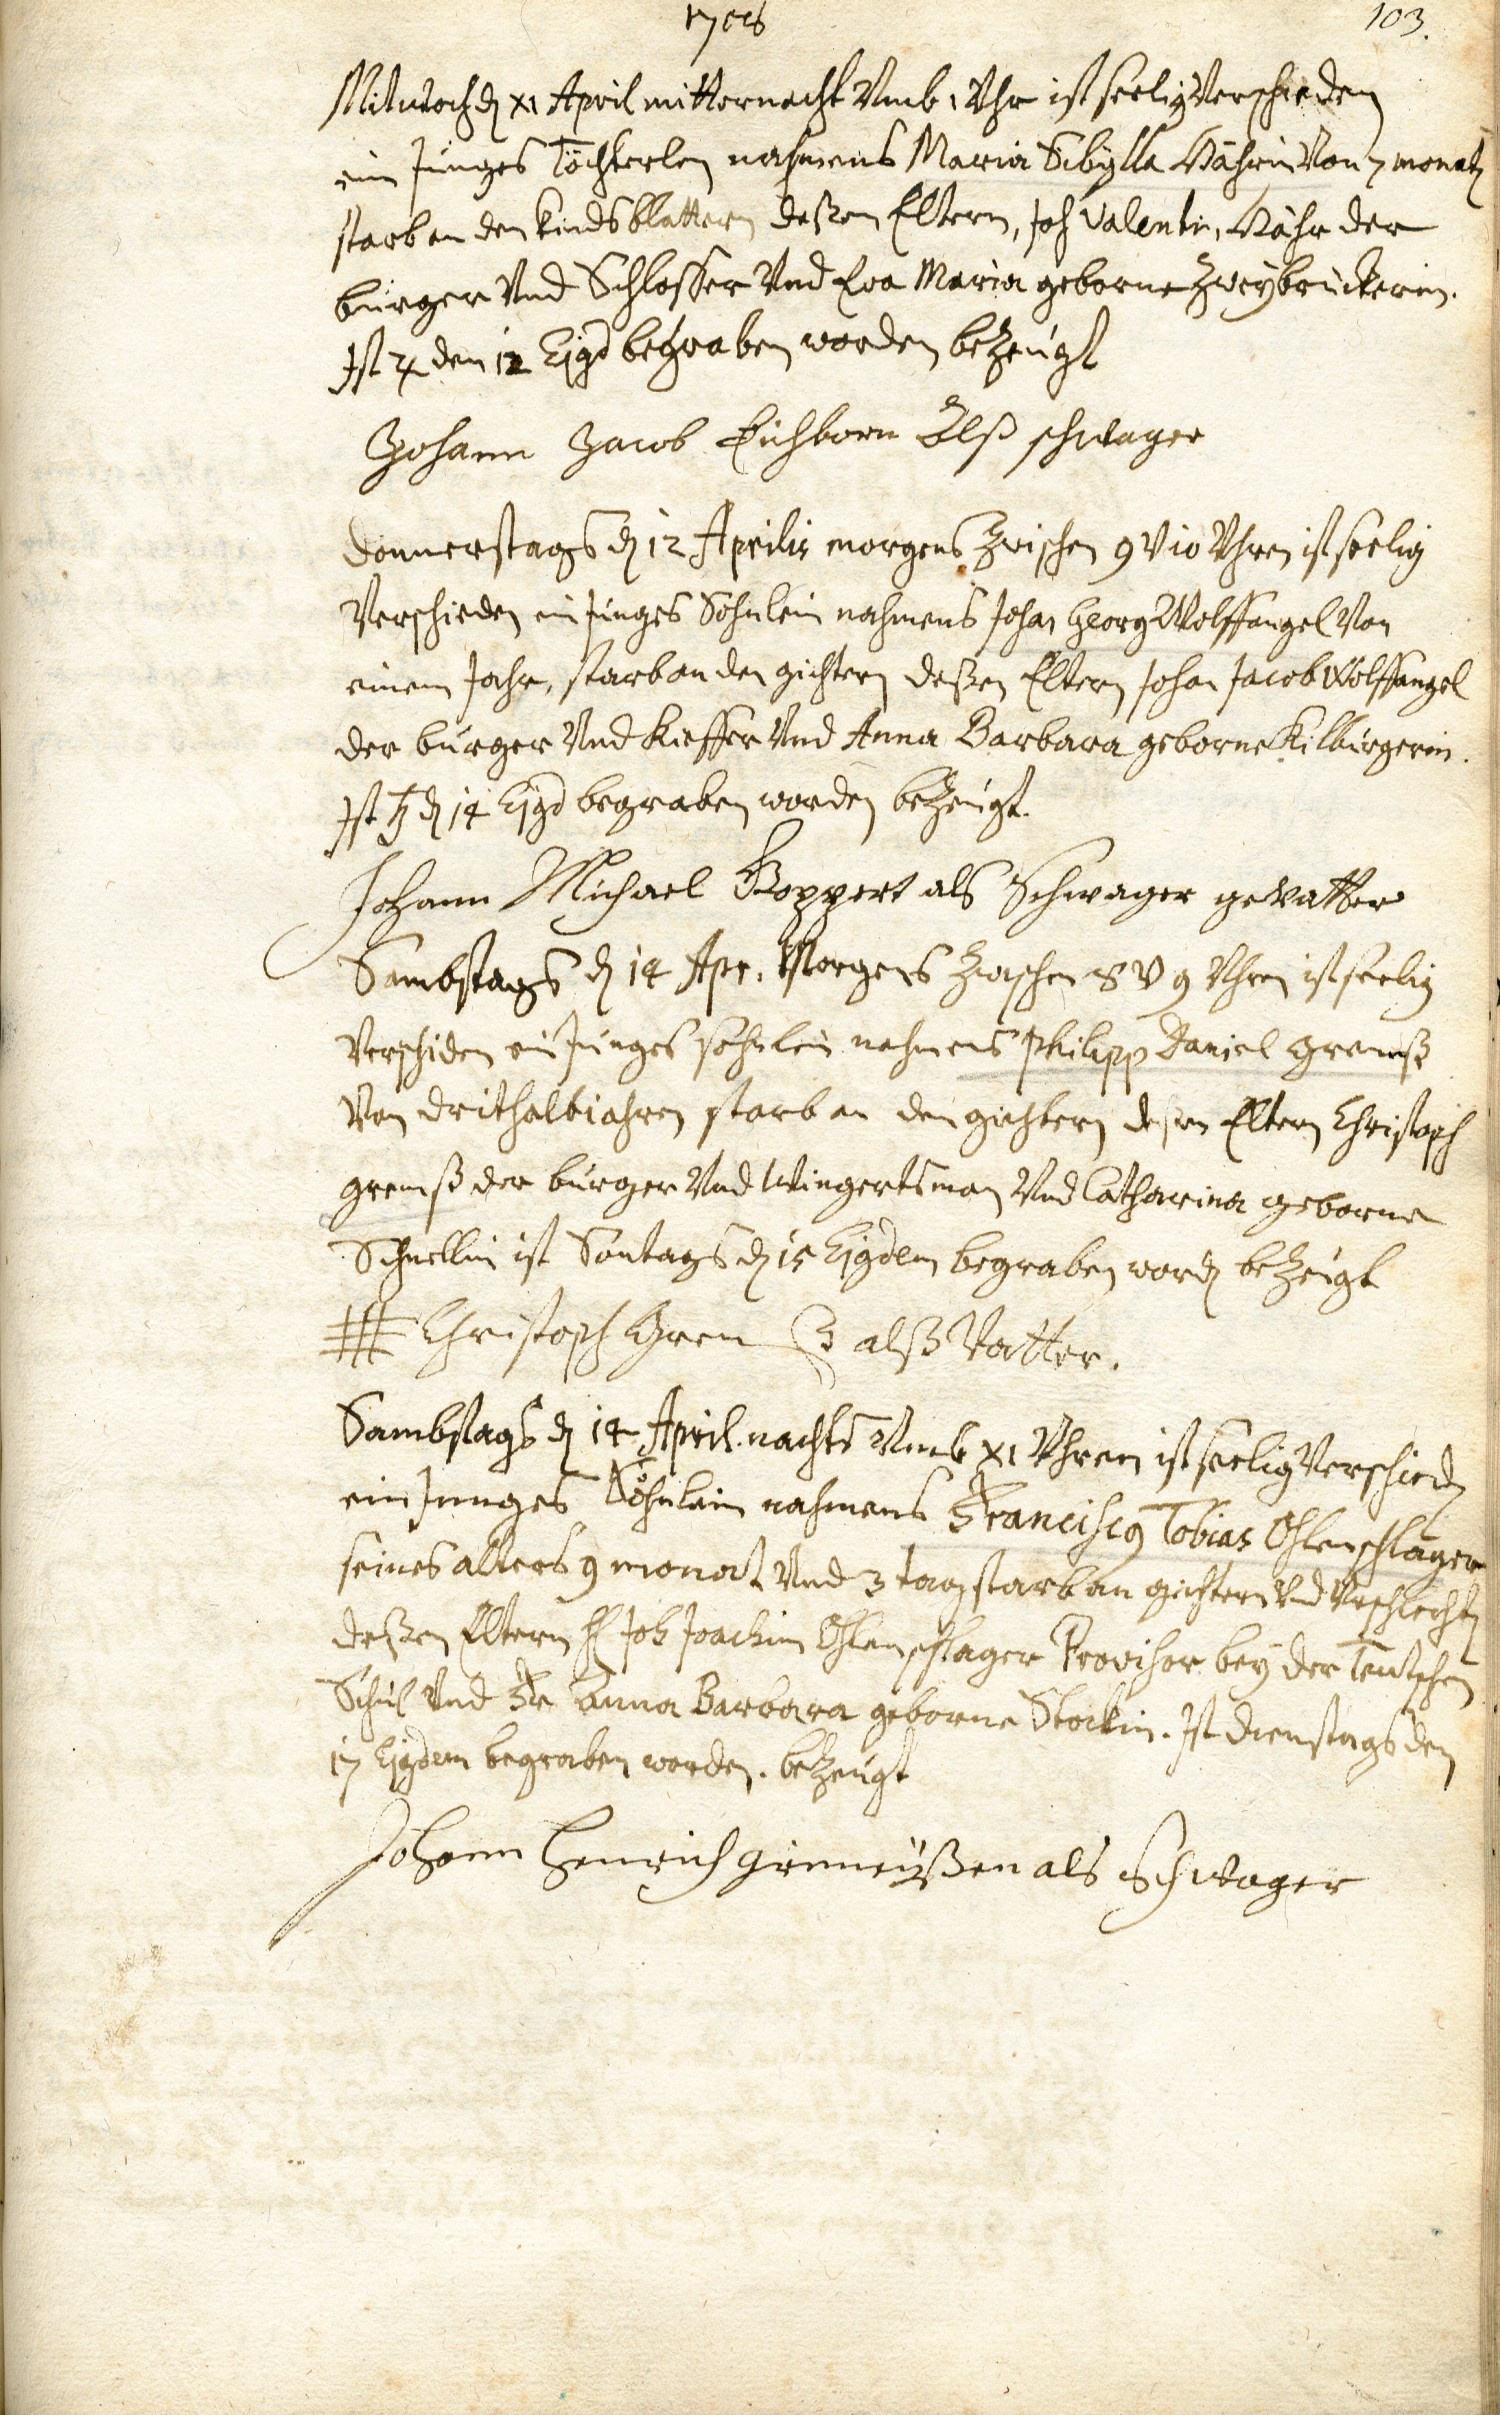 1708
103.
Mitwoch dȝ xi April mitternacht Vmb 1 Vhr ist seelig Verschieden
ein Junges Töchterlen nahmens Maria Sibylla Von 7 monatȝ
starb an den Kindsblattern deßen Eltern, Joh Valentin, der
burger Vnd Schlosser Vnd Eva Maria geborne Zweybrückerin.
Ist ♃ den 12 Ejgd begraben worden bezeugt
Johann Jacob Eichborn Alß schwager
Donnerstags dȝ 12 Aprilis morgens Zwischen 9 V 10 Vhren ist seelig
Verschieden ein Junges Söhnlein nahmens Johan Georg Wolffangel Von
einem Jahr, starb an den gichtern deßen Eltern Johan Jacob Wolffangel
der burger Vnd Kieffer Vnd Anna Barbara geborne Kilburgerin.
Ist ♄ dȝ 14 Ejgd begraben worden bezeugt.
Johann Michael Boppert als Schwager gevatter
Sambstags dȝ 14 Apr. Morgens Zwischen 8 V 9 Vhren ist seelig
Verschiden ein Junges söhnlein nahmens Philipp Daniel Gremß
Von drithalb jahren starb an den gichtern deßen Eltern Christoph
gremß der burger Vnd Wingertsman Vnd Catharina geborne
Schnellin ist Sontags dȝ 15 Ejgdem begraben wordȝ bezeugt
Christoph Grem ß alß Vatter.
Sambstags dȝ 14 April nachts Vmb xi Vhren ist seelig Verschiedȝ
ein Junges Söhnlein nahmens Franciscq Tobias Ohlenschlager
seines alters 9 monat Vnd 3 tag starb an gichtern Vnd
deßen Eltern H Joh Joachim Ohlenschlager Provisor bey der Teutschen
Schul Vnd Fr Anna Barbara geborne Stockin. Ist Dienstags den
17 Ejgdem begraben worden. bezeugt
Johann Henrich als Schwager